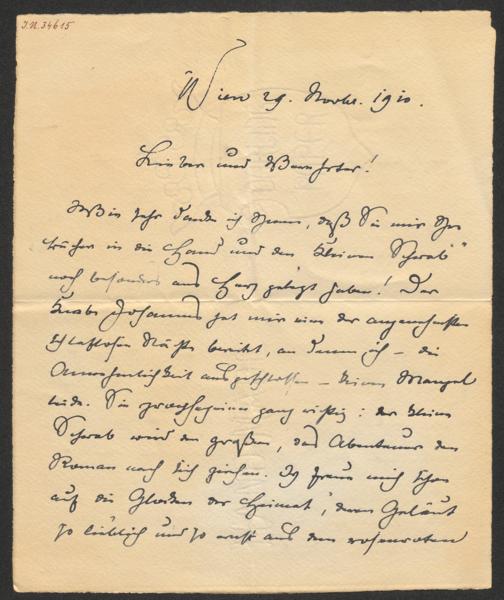 I.N. 34615
Wien 29. Novbr. 1910.
Lieber und Verehrter!
Wie sehr danke ich Ihnen, daß Sie mir Ihre
Bücher in die Hand und den „kleinen Schwab“
noch besonders ans Herz gelegt haben! Der
Knabe Johannes hat mir eine der angenehmsten
schlaflosen Nächte bereitet, an denen ich – die
Annehmlichkeit ausgeschlossen – keinen Mangel
leide. Sie prophezeien ganz richtig: der kleine
Schwab wird den großen, das Abenteuer den
Roman nach sich ziehen. Ich freue mich schon
auf die „Glocken der Heimat“, deren Geläut
so lieblich und so ernst aus dem rosenroten